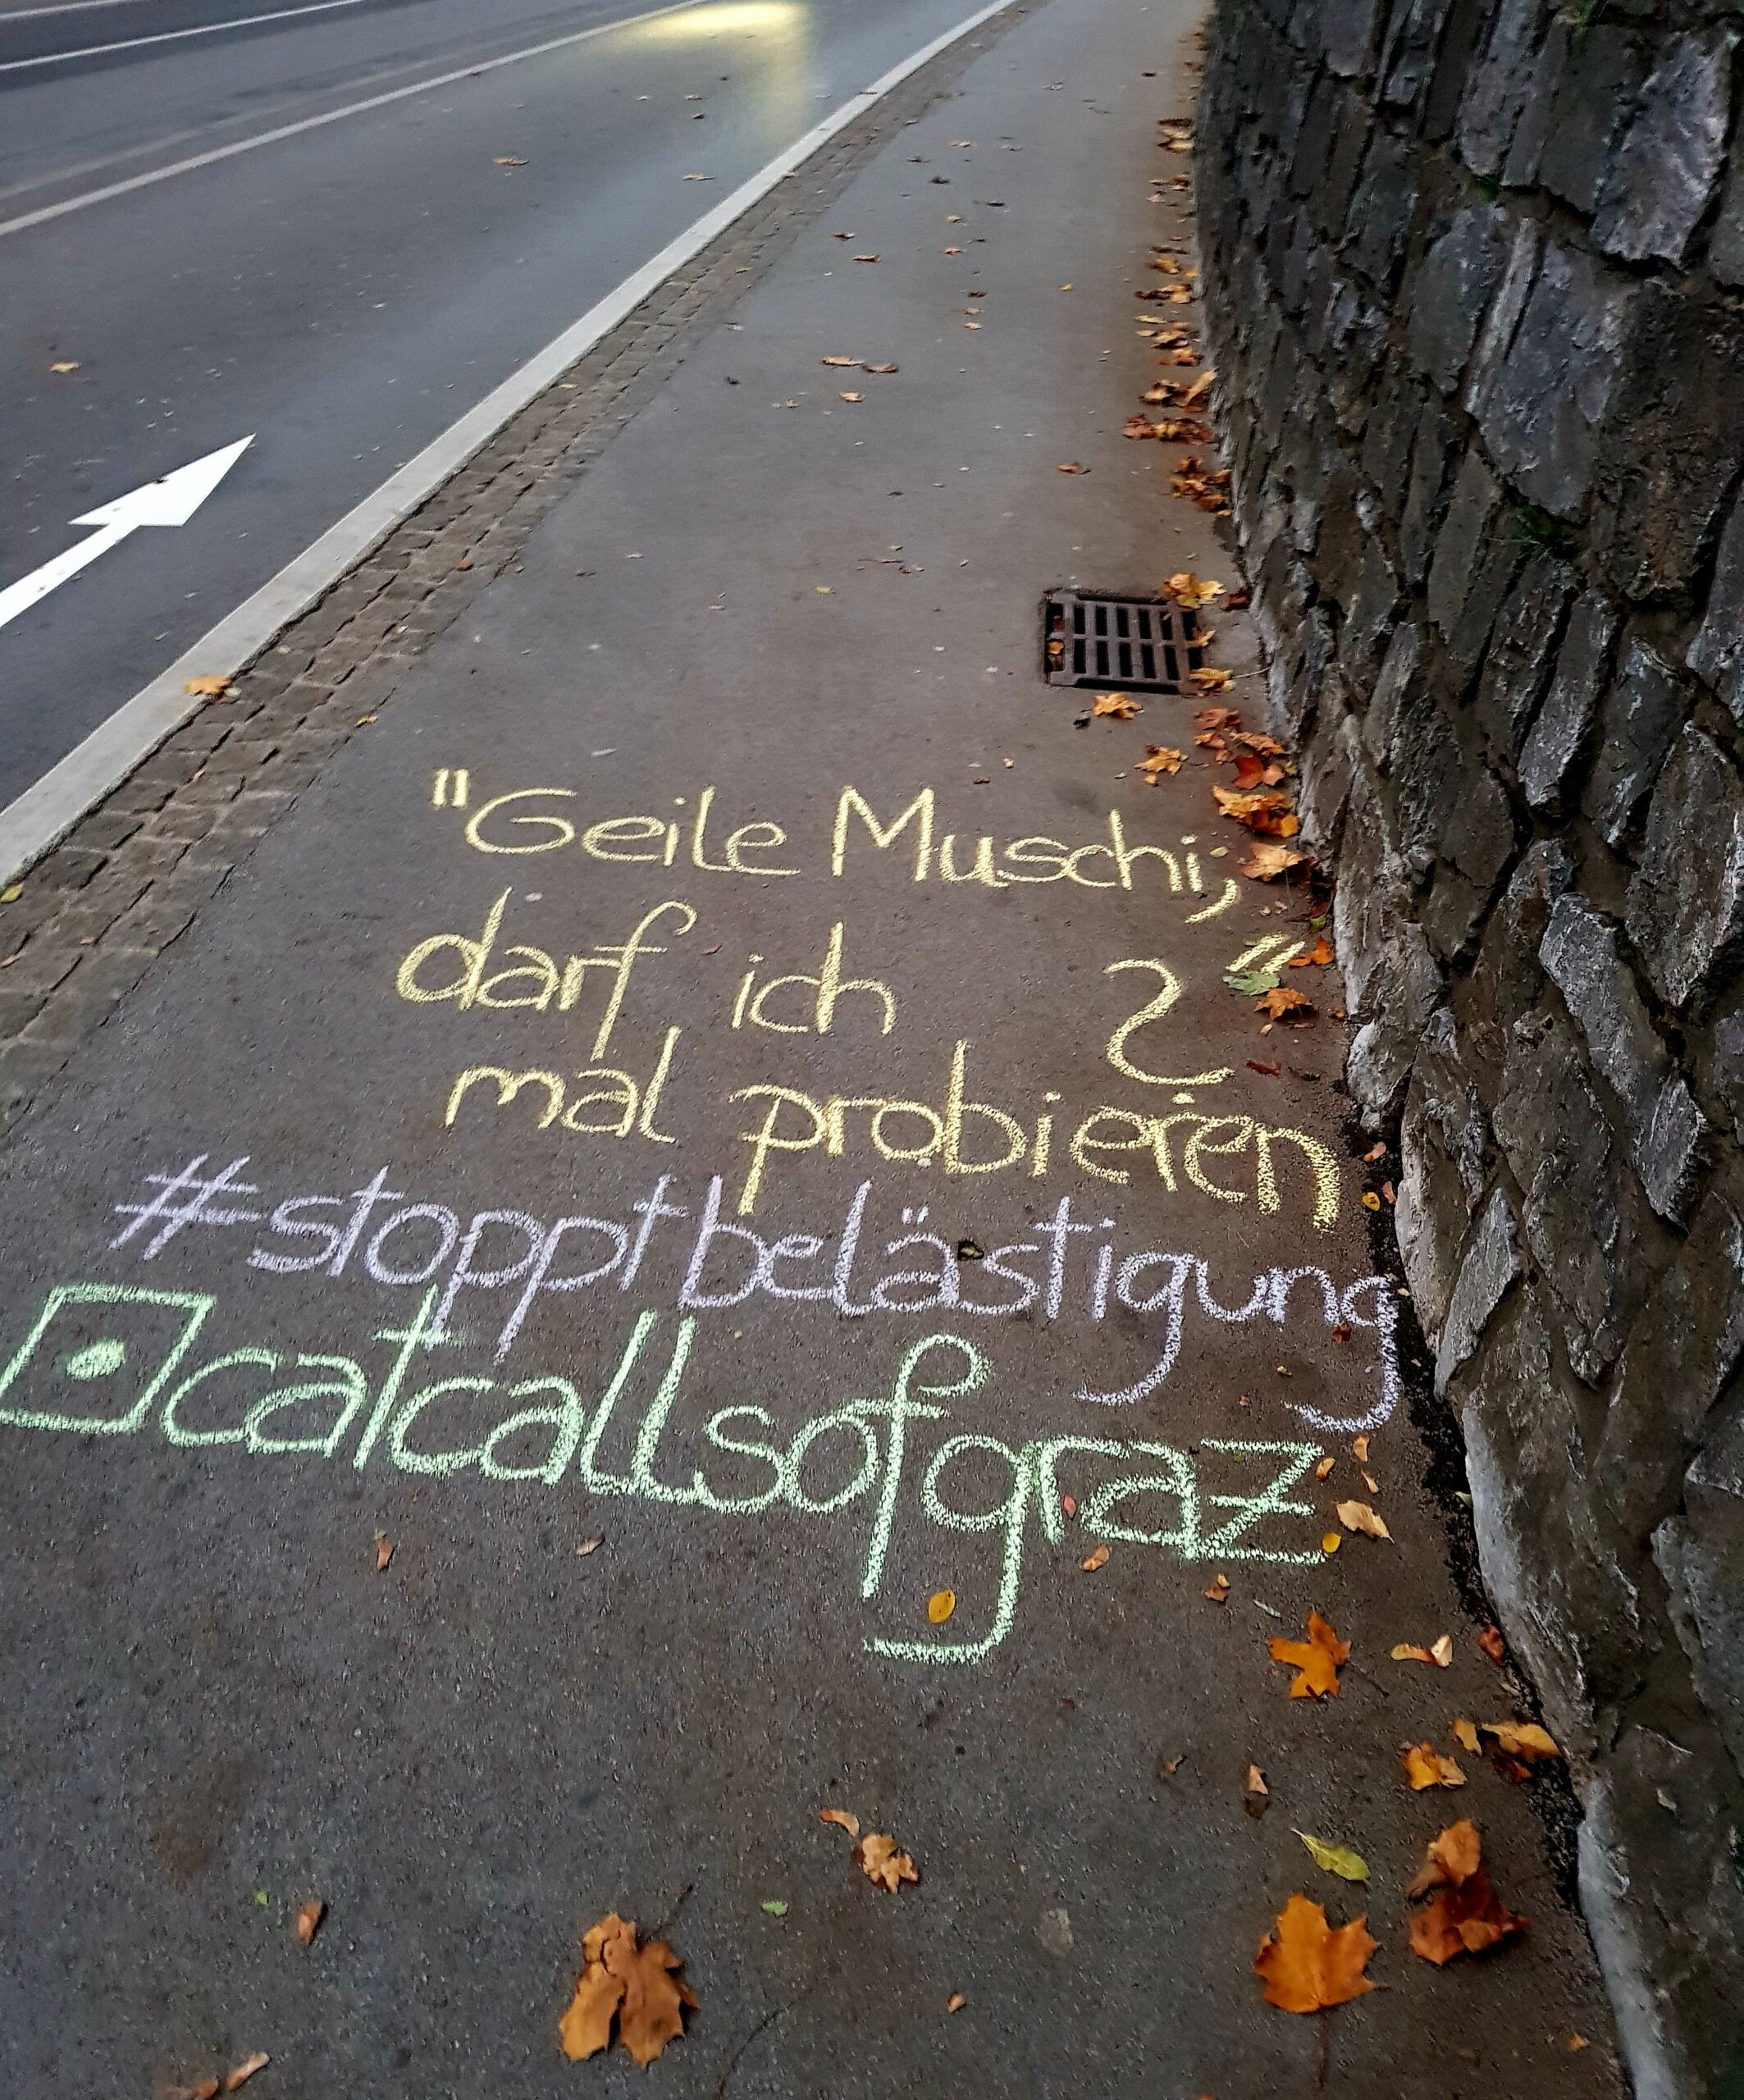 "Geile Muschi,
darf ich
mal probieren?"
#stoppt belästigung
catcallsofgraz